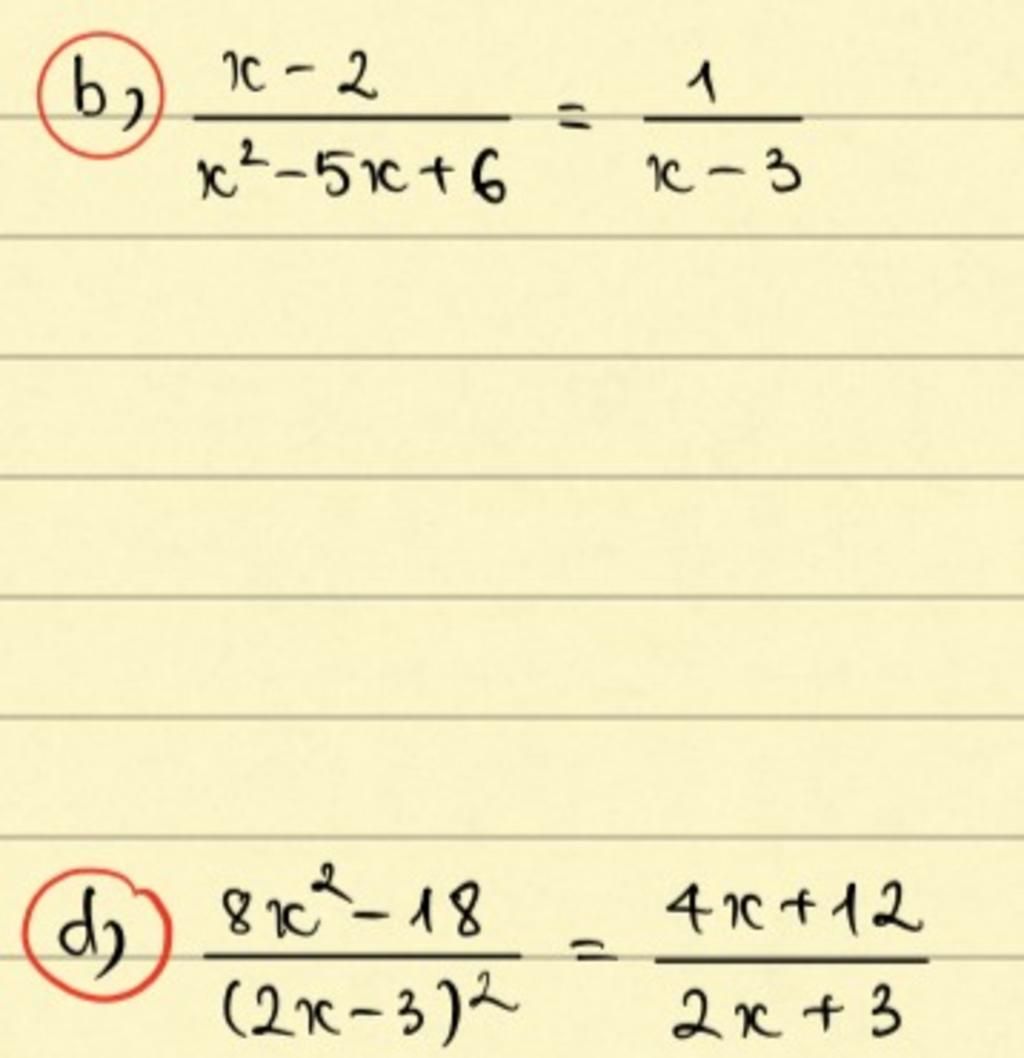 b, x - 2 / x² - 5x + 6 = 1 / x - 3
d, 8x² - 18 / (2x - 3)² = 4x + 12 / 2x + 3